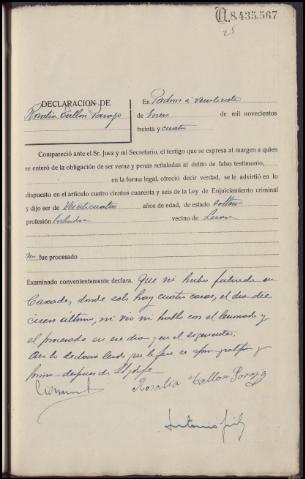 N.8.435.567
25
DECLARACION DE
Rosalia Tallon Porrojo
En Padron a veintisiete
de Enero de mil novecientos
treinta y cuatro
Compareció ante el Sr. Juez y mi Secretario, el testigo que se expresa al margen a quien
se enteró de la obligación de ser veraz y penas señaladas al delito de falso testimonio,
en la forma legal, ofreció decir verdad, se le advirtió en lo
dispuesto en el artículo cuatro cientos cuarenta y seis de la Ley de Enjuiciamiento criminal
y dijo ser de veinticuatro años de edad, de estado soltera
profesión labradora vecino de
No fue procesado
Examinado convenientemente declara. Que ni hubo
donde solo hay cuatro casas, el dia diez
ni vio ni hablo con el
el procesado en ese dia y en el siguiente.
Asi lo declara leida que le fue se y
firma despues de S.S. doy fe
Rosalia Tallon Porrojo
Antonio